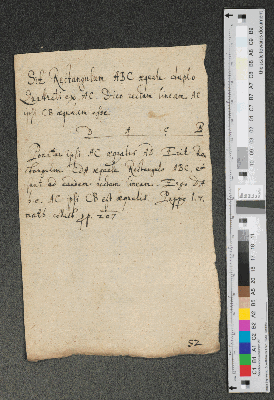 Sit Rectangulum ABC æquale duplo
Quadrati ex AC. Dico rectam lineam AC
ipsi CB æqualem esse.
D A C B
Ponatur ipsi AC æqualis AD. Erit Rec-
tangulum CDA æquale Rectangulo ABC, et
sunt ad eandem rectam lineam. Ergo DA
AC ipsi CB est æqualis. Pappo l. 7.
pp. 207
52